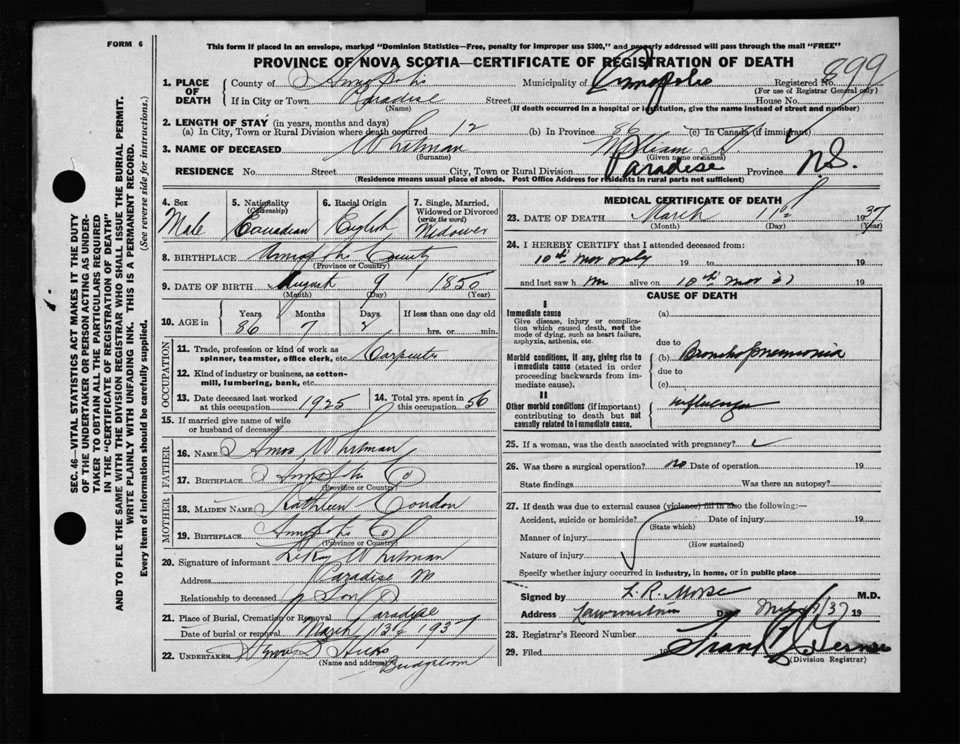 FORM 6
This form if placed in an envelope, marked "Dominion Statistics—Free, penalty for improper use $300," and properly addressed will pass through the mail "FREE"
PROVINCE OF NOVA SCOTIA—CERTIFICATE OF REGISTRATION OF DEATH
1. PLACE OF DEATH
County of Annapolis Municipality of Annapolis Registered No. 899
(For use of Registrar General only)
If in City or Town Paradise Street House No.
(Name) (If death occurred in a hospital or institution, give the name instead of street and number)
2. LENGTH OF STAY (in years, months and days)
(a) In City, Town or Rural Division where death occurred 12 (b) In Province 86 (c) In Canada (if immigrant)
3. NAME OF DECEASED Whitman William
(Surname) (Given name or names)
RESIDENCE No. Street City, Town or Rural Division Paradise Province N.S.
(Residence means usual place of abode. Post Office Address for residents in rural parts not sufficient)
4. Sex Male
5. Nationality (Citizenship) Canadian
6. Racial Origin English
7. Single, Married, Widowed or Divorced (write the word) Widower
8. BIRTHPLACE Annapolis County
(Province or Country)
9. DATE OF BIRTH August 9 1850
(Month) (Day) (Year)
10. AGE in Years Months Days If less than one day old
86 7 2 hrs. or min.
OCCUPATION
11. Trade, profession or kind of work as spinner, teamster, office clerk, etc. Carpenter
12. Kind of industry or business, as cotton-mill, lumbering, bank, etc.
13. Date deceased last worked at this occupation 1925
14. Total yrs. spent in this occupation 50
15. If married give name of wife or husband of deceased
FATHER
16. NAME Amos Whitman
17. BIRTHPLACE Annapolis Co
(Province or Country)
MOTHER
18. MAIDEN NAME Kathleen Condon
19. BIRTHPLACE Annapolis Co
(Province or Country)
20. Signature of informant LeRoy Whitman
Address Paradise
Relationship to deceased Son
21. Place of Burial, Cremation or Removal Paradise
Date of burial or removal March 13th 1937
22. UNDERTAKER Hicks
(Name and address) Bridgetown
MEDICAL CERTIFICATE OF DEATH
23. DATE OF DEATH March 11th 1937
(Month) (Day) (Year)
24. I HEREBY CERTIFY that I attended deceased from:
10th Mar only 19 to 19
and last saw h m alive on 10th Mar 37 19
CAUSE OF DEATH
I
Immediate cause
Give disease, injury or complication which caused death, not the mode of dying, such as heart failure, asphyxia, asthenia, etc.
(a)
due to
Morbid conditions, if any, giving rise to immediate cause (stated in order proceeding backwards from immediate cause).
(b) Bronchopneumonia
due to
(c)
II
Other morbid conditions (if important) contributing to death but not causally related to immediate cause.
Influenza
25. If a woman, was the death associated with pregnancy?
26. Was there a surgical operation? no Date of operation 19
State findings Was there an autopsy?
27. If death was due to external causes (violence) fill in also the following:—
Accident, suicide or homicide? Date of injury 19
(State which)
Manner of injury
(How sustained)
Nature of injury
Specify whether injury occurred in industry, in home, or in public place
Signed by L. R. Morse M.D.
Address Lawrencetown Date 37 19
28. Registrar's Record Number
29. Filed 19 Frank
(Division Registrar)
SEC. 46—VITAL STATISTICS ACT MAKES IT THE DUTY
OF THE UNDERTAKER OR PERSON ACTING AS UNDERTAKER TO OBTAIN ALL THE PARTICULARS REQUIRED
IN THE "CERTIFICATE OF REGISTRATION OF DEATH"
AND TO FILE THE SAME WITH THE DIVISION REGISTRAR WHO SHALL ISSUE THE BURIAL PERMIT.
WRITE PLAINLY WITH UNFADING INK. THIS IS A PERMANENT RECORD.
Every item of information should be carefully supplied. (See reverse side for instructions.)